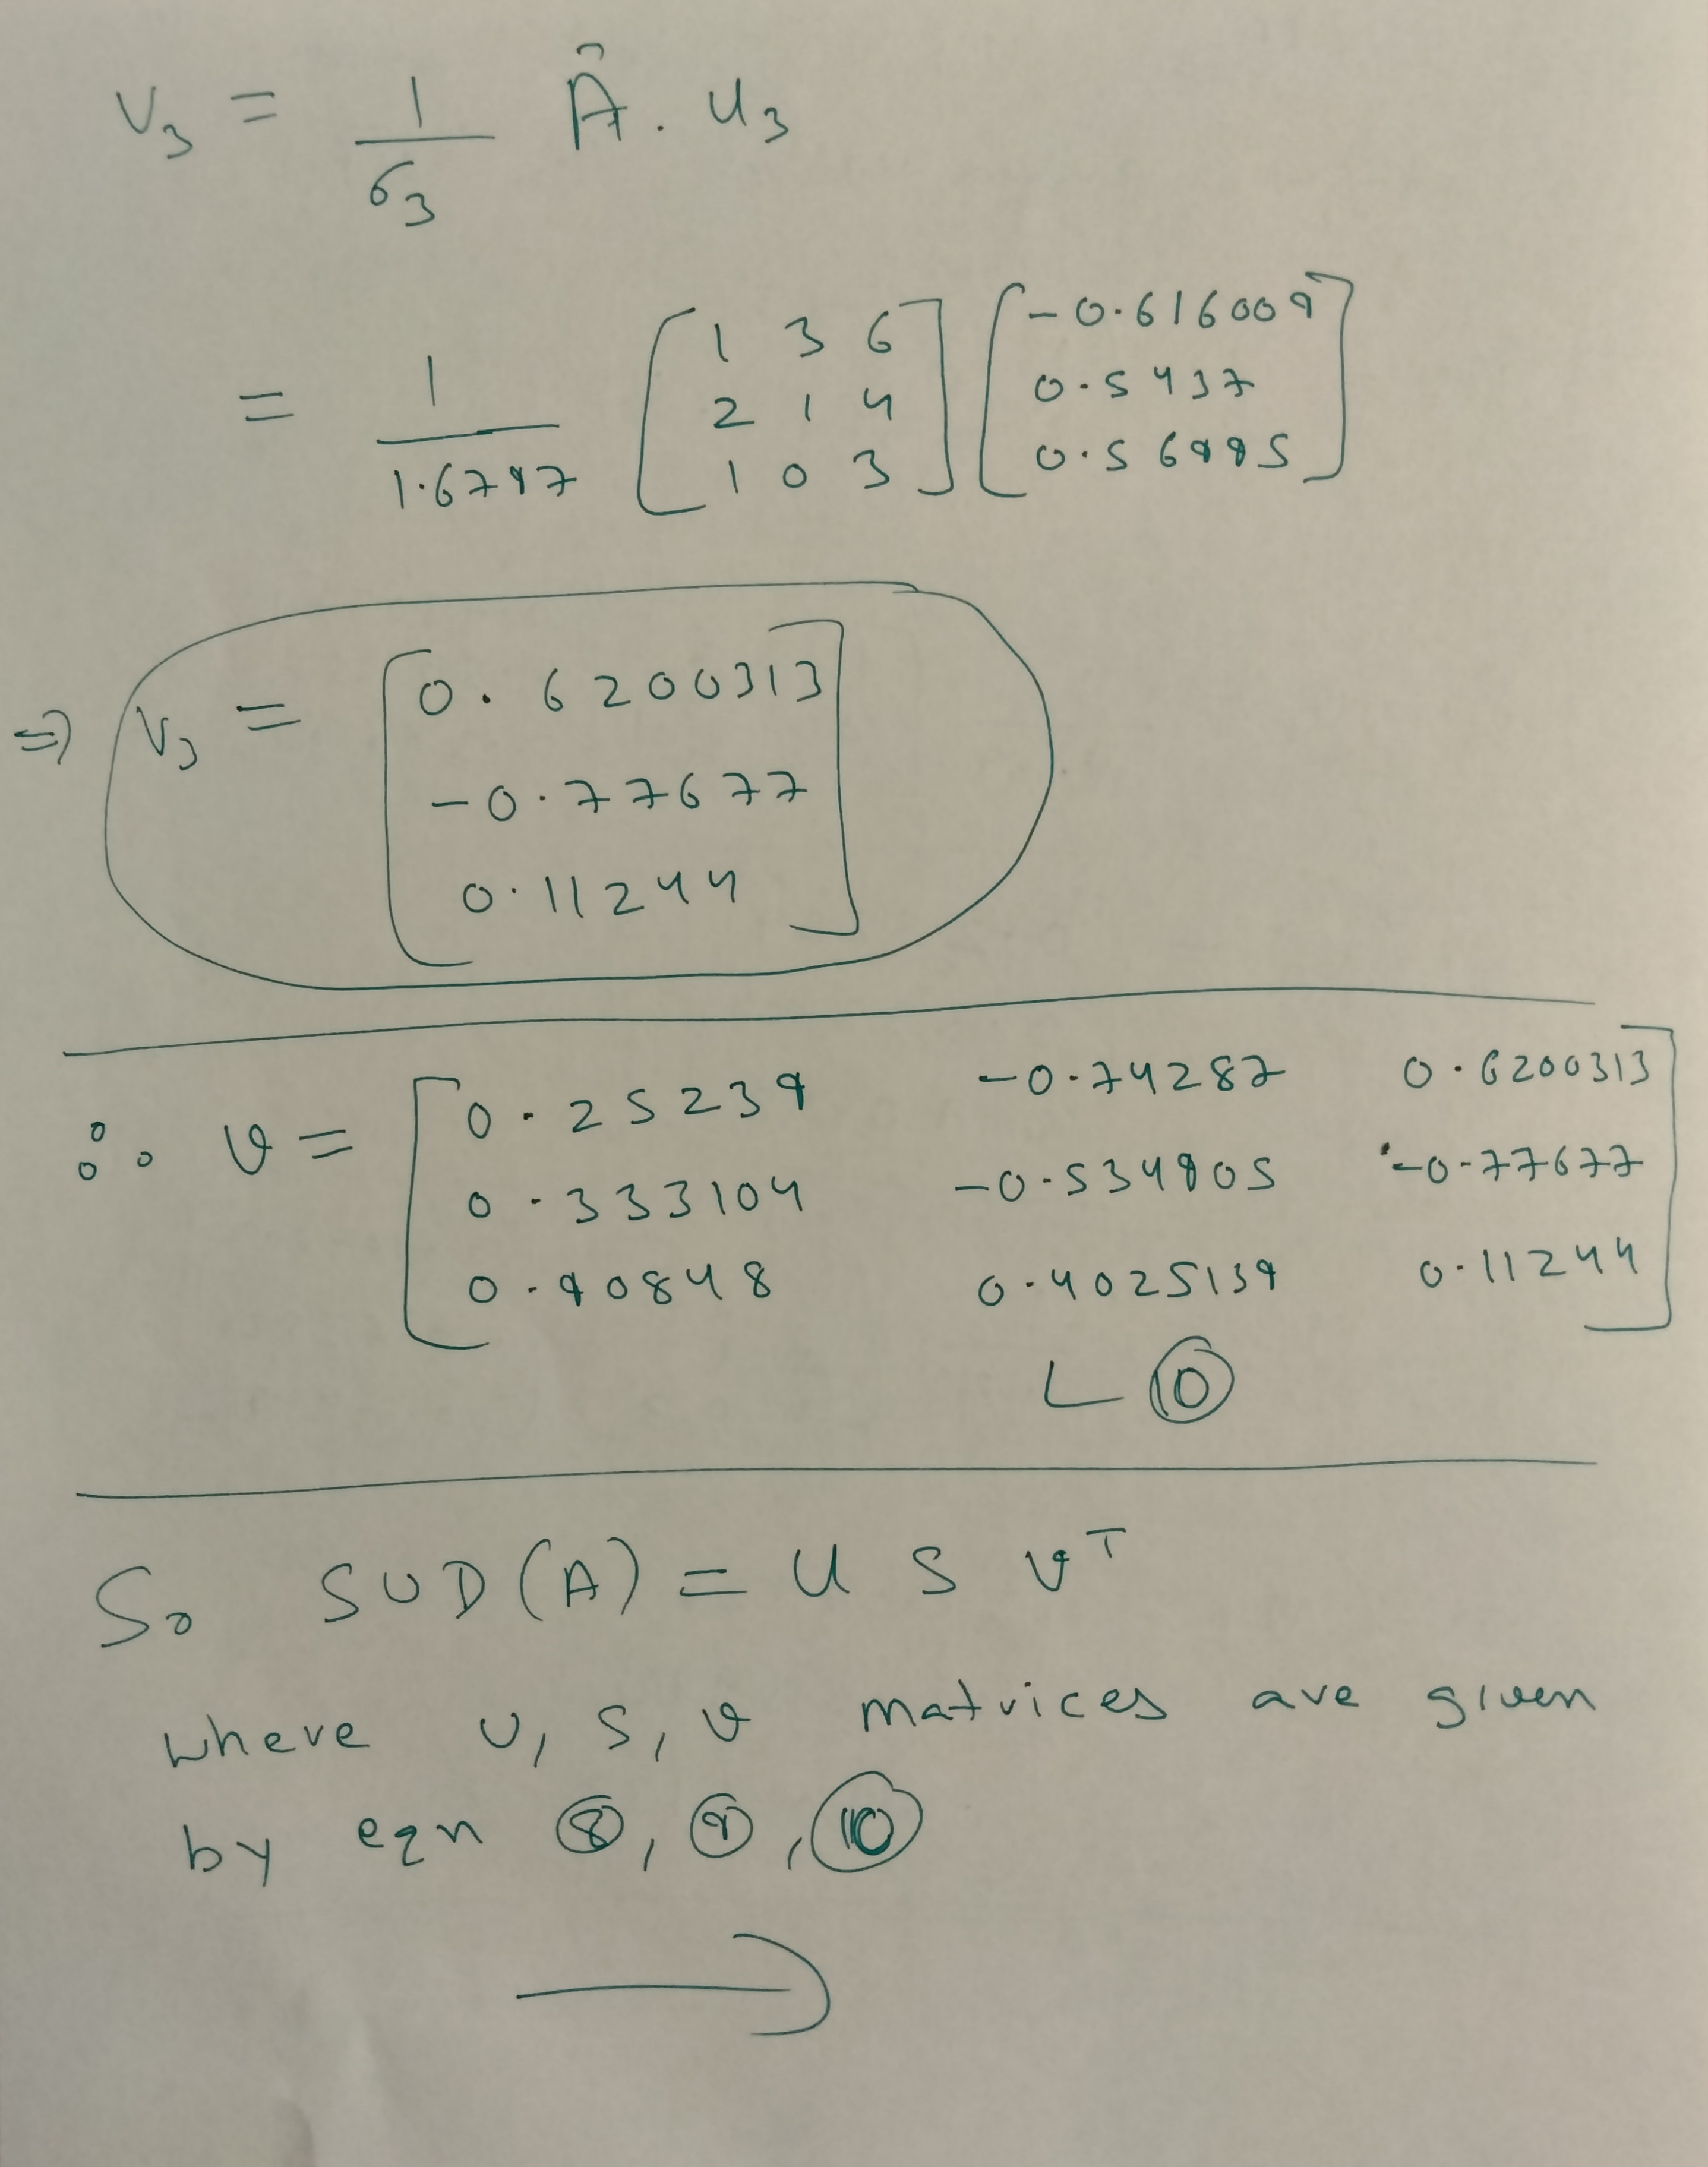 V₃ = 1/σ₃ Â . u₃
= 1/1.6797 [1 3 6; 2 1 4; 1 0 3] [-0.616009; 0.5437; 0.56995]
⇒ V₃ = [0.6200313; -0.77677; 0.11244]
∴ V = [0.25239 -0.74287 0.6200313
0.333104 -0.534905 -0.77677
0.90848 0.4025139 0.11244]
L ⑩
So SVD(A) = U S Vᵀ
where U, S, V matrices are given
by eqn ⑧, ⑨, ⑩